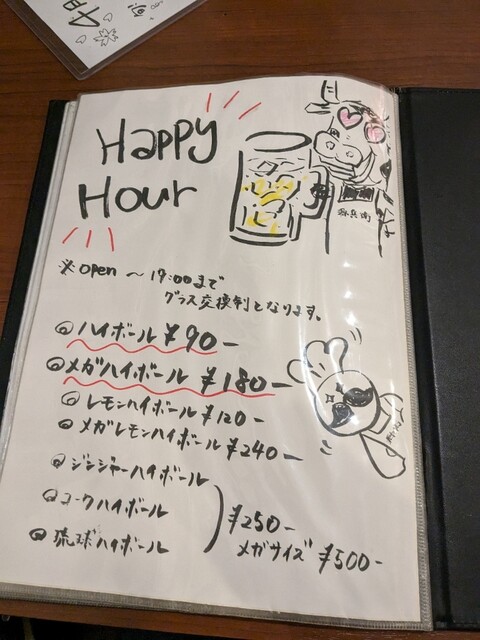 Happy
Hour
弥兵衛
※open ～ 19:00まで
グラス交換制となります。
◎ハイボール ¥90-
◎メガハイボール ¥180-
◎レモンハイボール ¥120-
◎メガレモンハイボール ¥240-
◎ジンジャーハイボール
◎コークハイボール
◎琉球ハイボール
¥250-
メガサイズ ¥500-